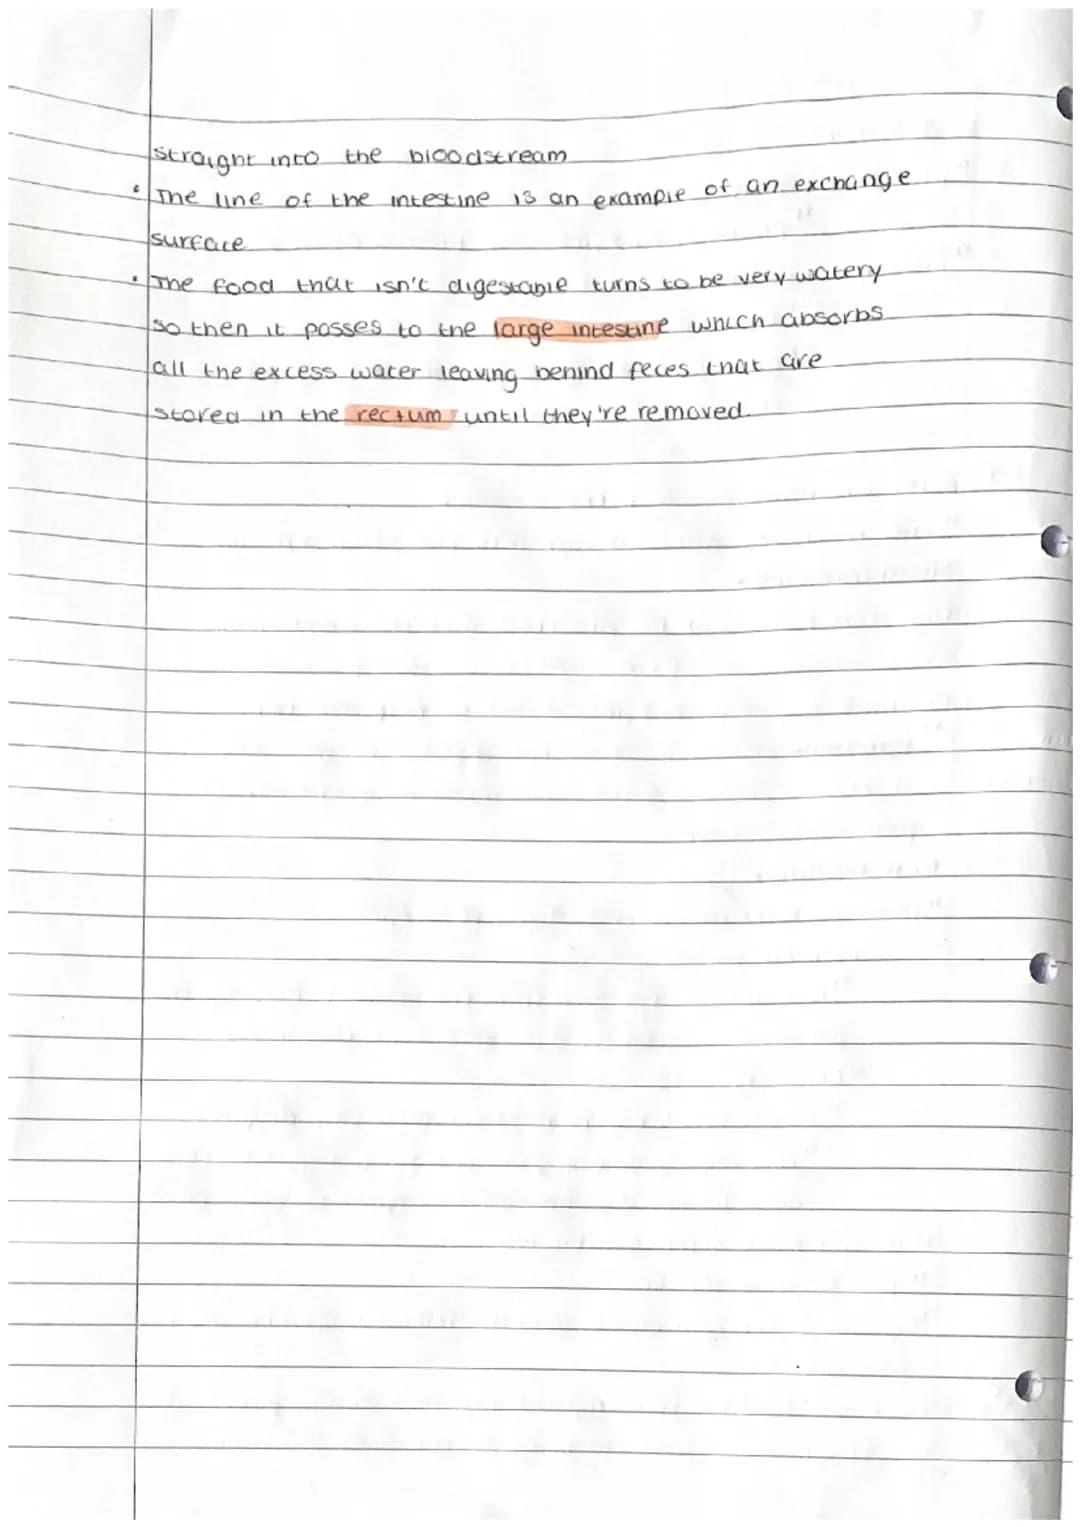 straight into the bloodstream
• The line of the intestine is an example of an exchange
surface
• The food that isn't digestable turns to be very watery
so then it passes to the large intestine which absorbs
all the excess water leaving behind feces that are
stored in the rectum until they're removed.